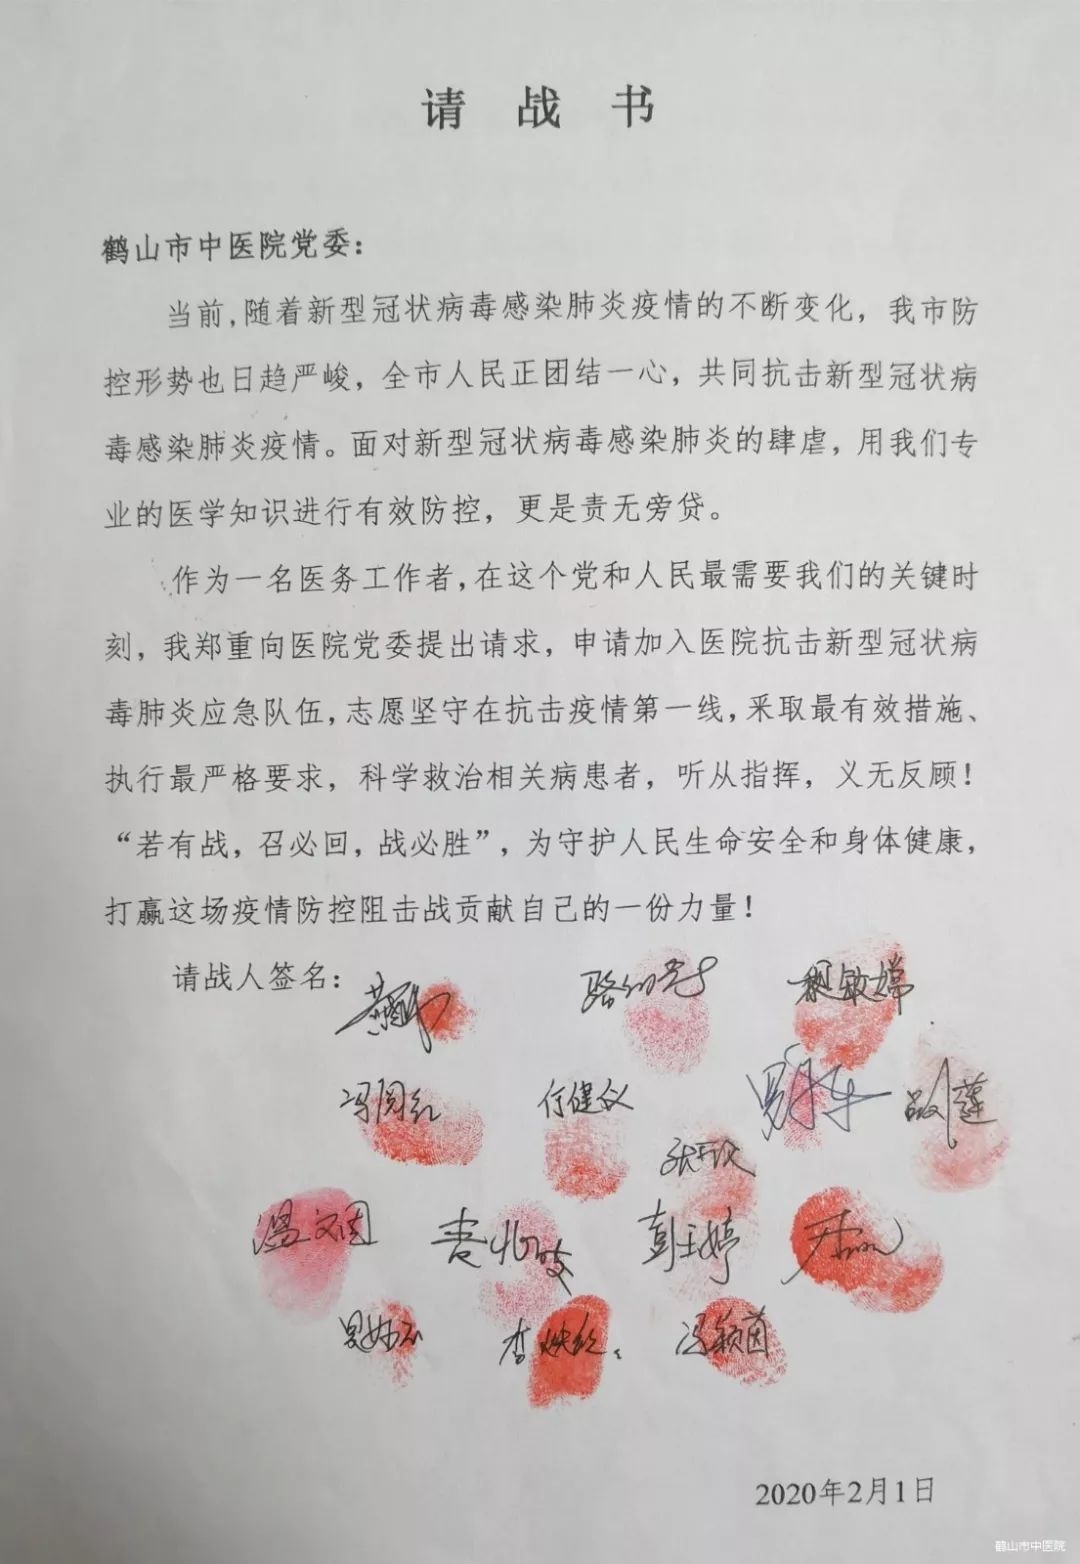 请战书
鹤山市中医院党委：
当前,随着新型冠状病毒感染肺炎疫情的不断变化，我市防
控形势也日趋严峻，全市人民正团结一心，共同抗击新型冠状病
毒感染肺炎疫情。面对新型冠状病毒感染肺炎的肆虐，用我们专
业的医学知识进行有效防控，更是责无旁贷。
作为一名医务工作者,在这个党和人民最需要我们的关键时
刻，我郑重向医院党委提出请求，申请加入医院抗击新型冠状病
毒肺炎应急队伍，志愿坚守在抗击疫情第一线，采取最有效措施、
执行最严格要求，科学救治相关病患者，听从指挥，义无反顾！
“若有战，召必回，战必胜”，为守护人民生命安全和身体健康，
打赢这场疫情防控阻击战贡献自己的一份力量！
请战人签名：
冯阅红
何健仪
彭玉婷
冯颖茵
2020年2月1日
鹤山市中医院